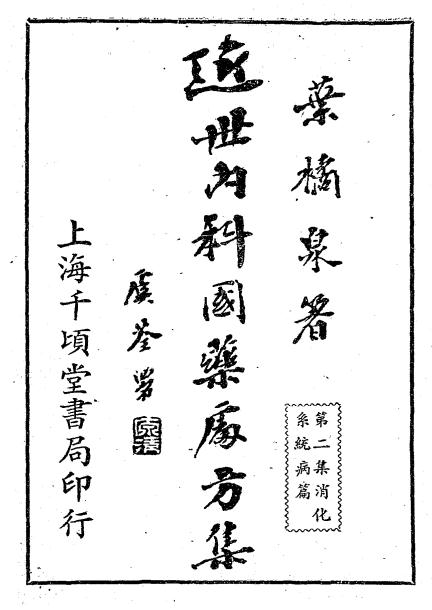 葉橘泉著
第二集消化
系統病篇
近世內科國藥處方集
上海千頃堂書局印行